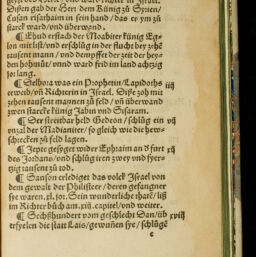 Disen gab der Herr dem Künig zů Syrien/
Cusan risarhaim in sein hand / das er ym zů
starck ward / vnd überwand.
¶ Ehud erstach der Moabiter künig Eg-
lon mitlist/vnd erschlůg in der flucht bey zehẽ
tausent mann / vnd dempffet der zeit der hey-
den hohmůt/ vnnd ward frid im land achzig
jar lang.
¶ Delbora was ein Prophetin/Lapidoths iiij
eeweib/vñ Richterin in Israel. Dise zoh mit
zehen tausent mannen zů feld / vñ überwand
zwen starck künig Jabin vnd Sisaram.
¶ Der streitbar held Gedeon / schlůg ein vij
vnzal der Madianiter/ so gleich wie die hew-
schrecken zů feld lagen.
¶ Jepte gesyget wider Ephraim an ð furt xij
des Jordans/ vnd schlůg iren zwey vnd fyer-
tzig tausent zů tod.
¶ Sanson erlediget das volck Israel von
dem gewalt der Philisteer / deren gefangner
sye waren. xl. jor. Sein wunderliche that/ liß
im Richter bůch am. xiij. capitel/vnd weiter.
¶ Sechßhundert vom geschlecht Dan/üb xviij
erfyelen die statt Lais/gewunnẽ sye / schlůgẽ
c